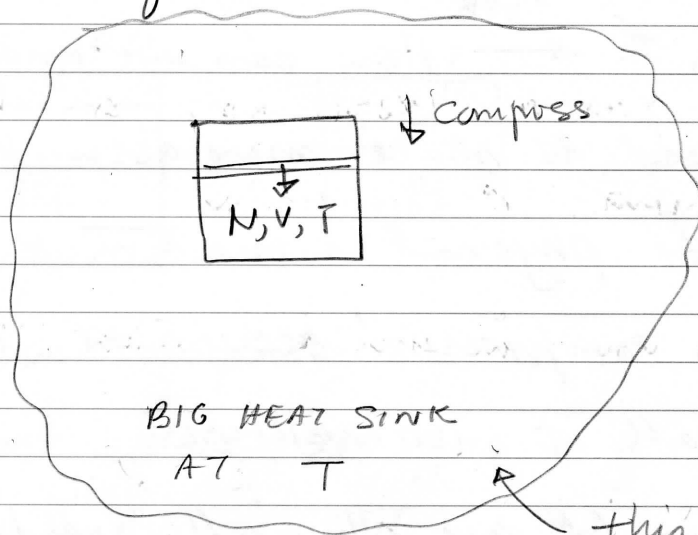 compress
N, V, T
BIG HEAT SINK
AT T
this